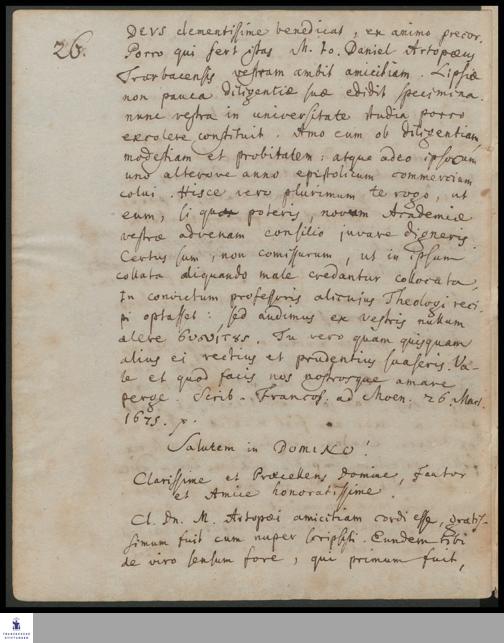 26.
DEVS clementissime benedicat, ex animo precor.
Porro qui fert istas M. Io. Daniel Artopœus
Trarbacensis vestram ambit amicitiam. Lipsiæ
non pauca diligentiæ suæ edidit specimina.
nunc vestra in universitate studia porro
excolere constituit. Amo eum ob diligentiam
modestiam et probitatem: atque adeo ipsocum
uno alterove anno epistolicum commercium
colui. Hisce vero plurimum te rogo, ut
eum, si poteris, novum Academiæ
vestræ advenam consilio juvare digneris.
Certus sum, non comissurum, ut in ipsum
collata aliquando male credantur collocata,
In convictum professoris alicujus Theologi reci-
pi optasset: sed audimus ex vestris nullum
alere. Tu vero quam quisquam
alius ei rectius et prudentius suaseris. Va-
le et quod facis nos nostrosque amare
perge. Scrib. Francof. ad Moen. 26. Mart.
1675.
Salutem in DOMINO!
Clarissime et Præcellens Domine, Fautor
et Amice honoratissime.
Cl. Dn. M. Artopœi amicitiam cordi esse, gratis-
simum fuit cum nuper scripsisti. Eundem tibi
de viro sensum fore, qui primum fuit,
FRANCKESCHE
STIFTUNGEN